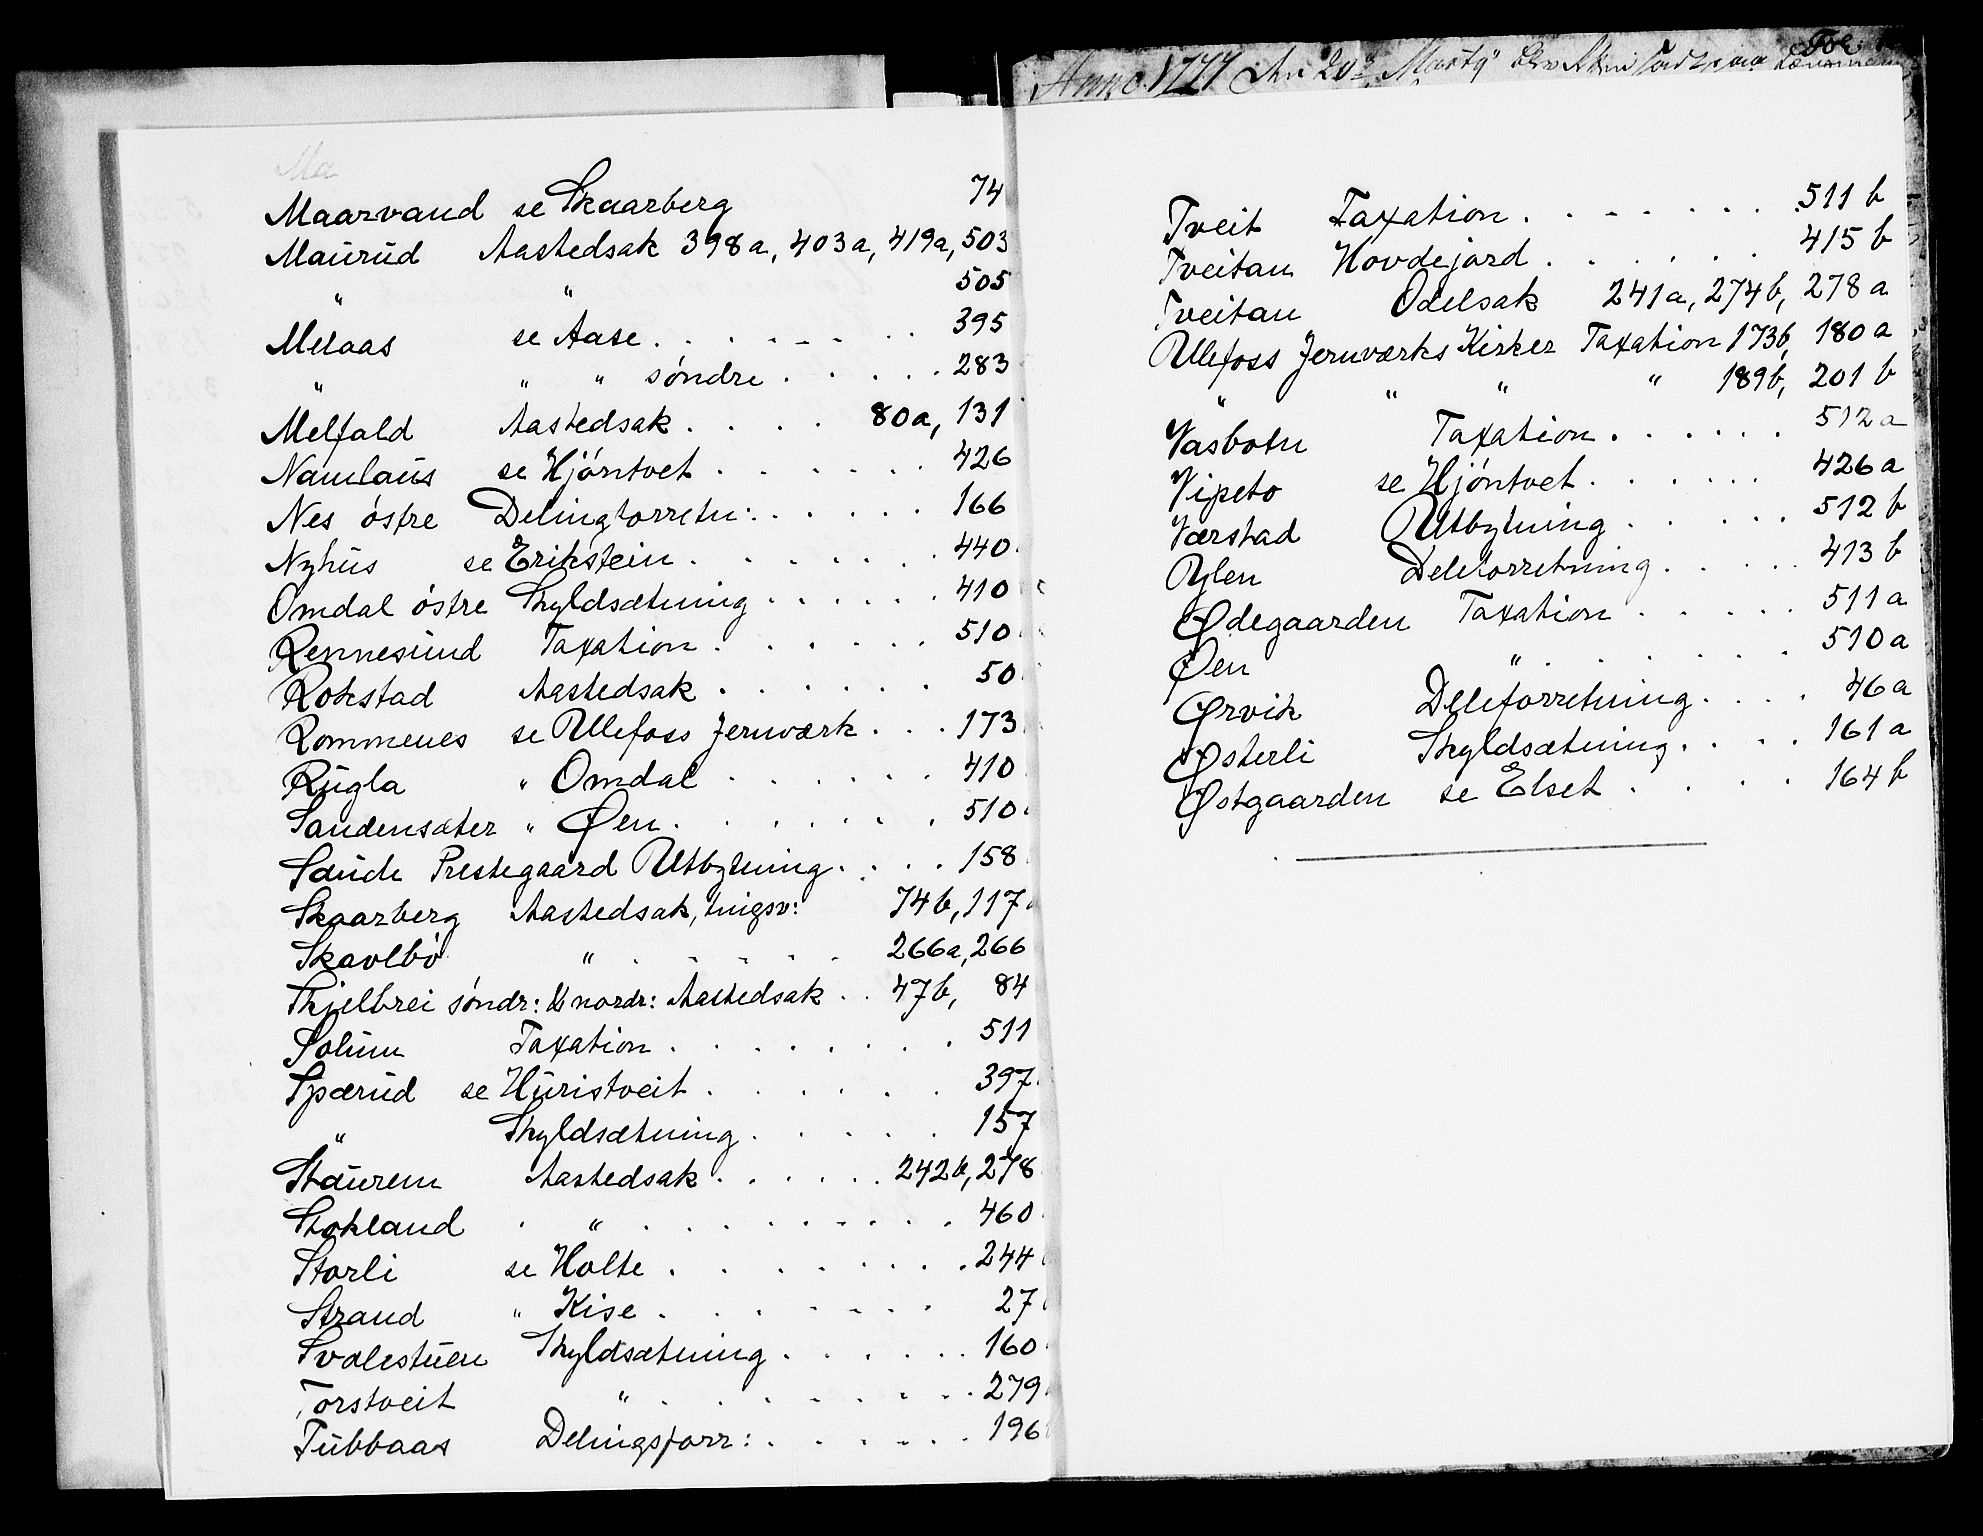 Ma
Maarvand se Skaarberg 74
Maurud Aastedsak 398a, 403a, 419a, 503
" " 505
Melaas se Aase . . . . . . . 395
" " " söndre . . . . . 283
Melfald Aastedsak . . . . 80a, 131
Namlaus se Hjöntvet . . . . . . 426
Nes östre Delingforretn: . . . . . . 166
Nyhus se Erikstein . . . . . . 440
Omdal östre Skyldsætning . . . . . . 410
Rennesund Taxation . . . . . . 510
Rokstad Aastedsak . . . . . . 50
Rommenes se Ullefoss Jernværk . . . 173
Rugla " Omdal . . . . . . 410
Sandensæter " Øen . . . . . . . 510
Saude Prestegaard Utbytning . . . . 158
Skaarberg Aastedsak, tingsv: 74b, 117
Skavlbö " . . . . . 266a, 266
Skjelbrei söndr: & nordr: Aastedsak . . 47b, 84
Solum Taxation . . . . . . . . 511
Spærud se Huristveit . . . . . . 397
" Skyldsætning . . . . . 157
Staurem Aastedsak . . . . . . 242b, 278
Stokland . " . . . . . . . . . 460
Storli se Holte . . . . . . . . 244
Strand " Kise . . . . . . . 27
Svalestuen Skyldsætning . . . . . . 160
Torstveit " . . . . . . . . 279
Tubbaas Delingsforr: . . . . . . 196
Anno 1777 den 20de Marty
Tveit Taxation . . . . . . . 511 b
Tveitan Hovdejord . . . . . . 415 b
Tveitan Odelsak 241a, 274b, 278a
Ullefoss Jernværks Kirker Taxation 173b, 180a
" " " " 189b, 201 b
Vasbotn Taxation . . . . . . 512a
Vipeto se Hjöntvet . . . . . . 426a
Værstad Utbytning . . . . . 512 b
Øylen Deleforretning . . . . . 413 b
Ødegaarden Taxation . . . . . 511a
Øen " . . . . . . 510a
Ørvik Deleforretning . . . . 46a
Østerli Skyldsætning . . . . 161a
Østgaarden se Elset . . . . 164b